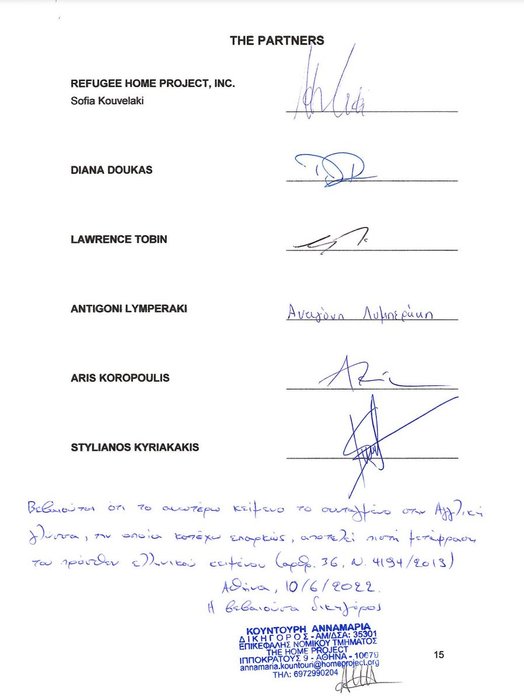 THE PARTNERS
REFUGEE HOME PROJECT, INC.
Sofia Kouvelaki
DIANA DOUKAS
LAWRENCE TOBIN
ANTIGONI LYMPERAKI
Αντιγόνη Λυμπεράκη
ARIS KOROPOULIS
STYLIANOS KYRIAKAKIS
Βεβαιούται ότι το ανωτέρω κείμενο το συνταγμένο στην Αγγλική
γλώσσα, την οποία κατέχω επαρκώς, αποτελεί πιστή μετάφραση
του πρόσθεν ελληνικού κειμένου (αρθρ. 36, Ν. 4194/2013)
Αθήνα, 10/6/2022.
Η βεβαιούσα δικηγόρος
ΚΟΥΝΤΟΥΡΗ ΑΝΝΑΜΑΡΙΑ
ΔΙΚΗΓΟΡΟΣ - ΑΜ/ΔΣΑ: 35301
ΕΠΙΚΕΦΑΛΗΣ ΝΟΜΙΚΟΥ ΤΜΗΜΑΤΟΣ
THE HOME PROJECT
ΙΠΠΟΚΡΑΤΟΥΣ 9 - ΑΘΗΝΑ - 10679
annamaria.kountouri@homeproject.org
ΤΗΛ: 6972990204
15